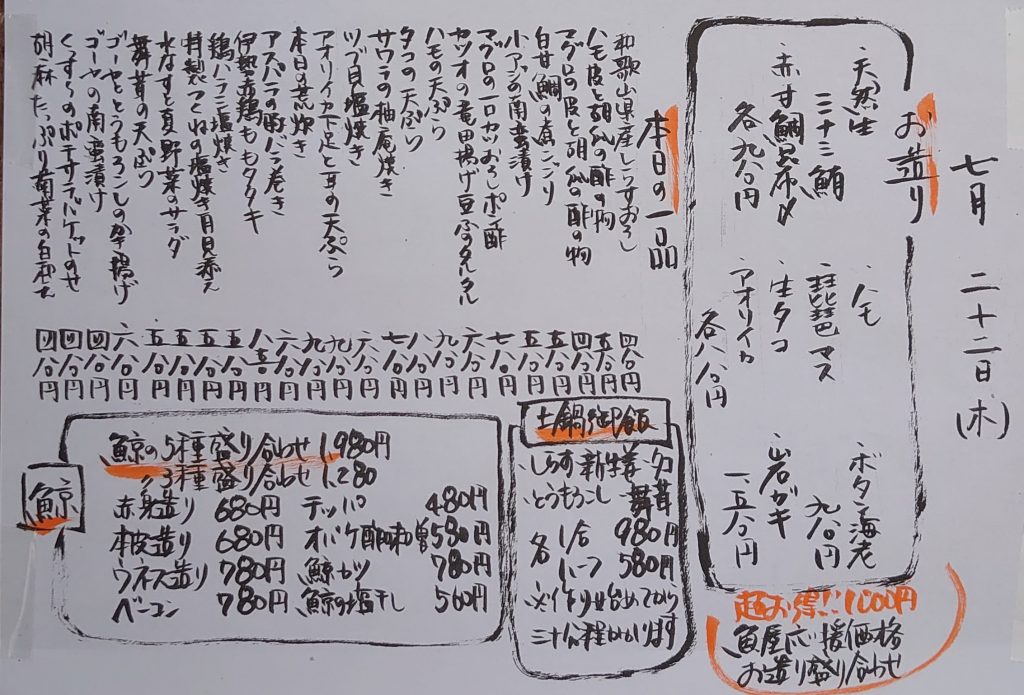 七月 二十二日(木)
お造り
天然生
三十三鮪
赤甘鯛昆布〆
各九八〇円
ハモ
琵琶マス
生タコ
アオリイカ
各八八〇円
ボタン海老
九八〇円
岩ガキ
一、五八〇円
超お得!!1,000円
魚屋応援価格
お造り盛り合わせ
本日の一品
和歌山県産しらすおろし 四八〇円
ハモ皮と胡瓜の酢の物 五八〇円
マグロの皮と胡瓜の酢の物 四八〇円
白甘鯛の煮こごり 五八〇円
小アジの南蛮漬け
マグロの一口カツおろしポン酢
カツオの竜田揚げ豆ふのタルタル
ハモの天ぷら
タコの天ぷら
サワラの柚庵焼き
ツブ貝塩焼き
アオリイカ下足と耳の天ぷら
本日の荒炊き
アスパラの豚バラ巻き
伊勢赤鶏ももタタキ
鶏ハラミ塩焼き
特製つくねの塩焼き月見添え
水なすと夏野菜のサラダ
舞茸の天ぷら
ゴーヤととうもろこしの掻き揚げ
ゴーヤの南蛮漬け 四八〇円
くずくずのポテサラバケットのせ 四八〇円
胡麻たっぷり菊菜の白和え 四八〇円
土鍋御飯
・しらす・新生姜・タコ
・とうもろこし・舞茸
各 1合 980円
ハーフ 580円
※作り始めてから
三十分程かかります
鯨
鯨の5種盛り合わせ 1,980円
〃3種盛り合わせ 1,280
赤身造り 680円
本皮造り 680円
ウネス造り 780円
ベーコン 780円
テッパ 480円
オバケ酢味噌 580円
鯨カツ 780円
鯨の塩干し 560円